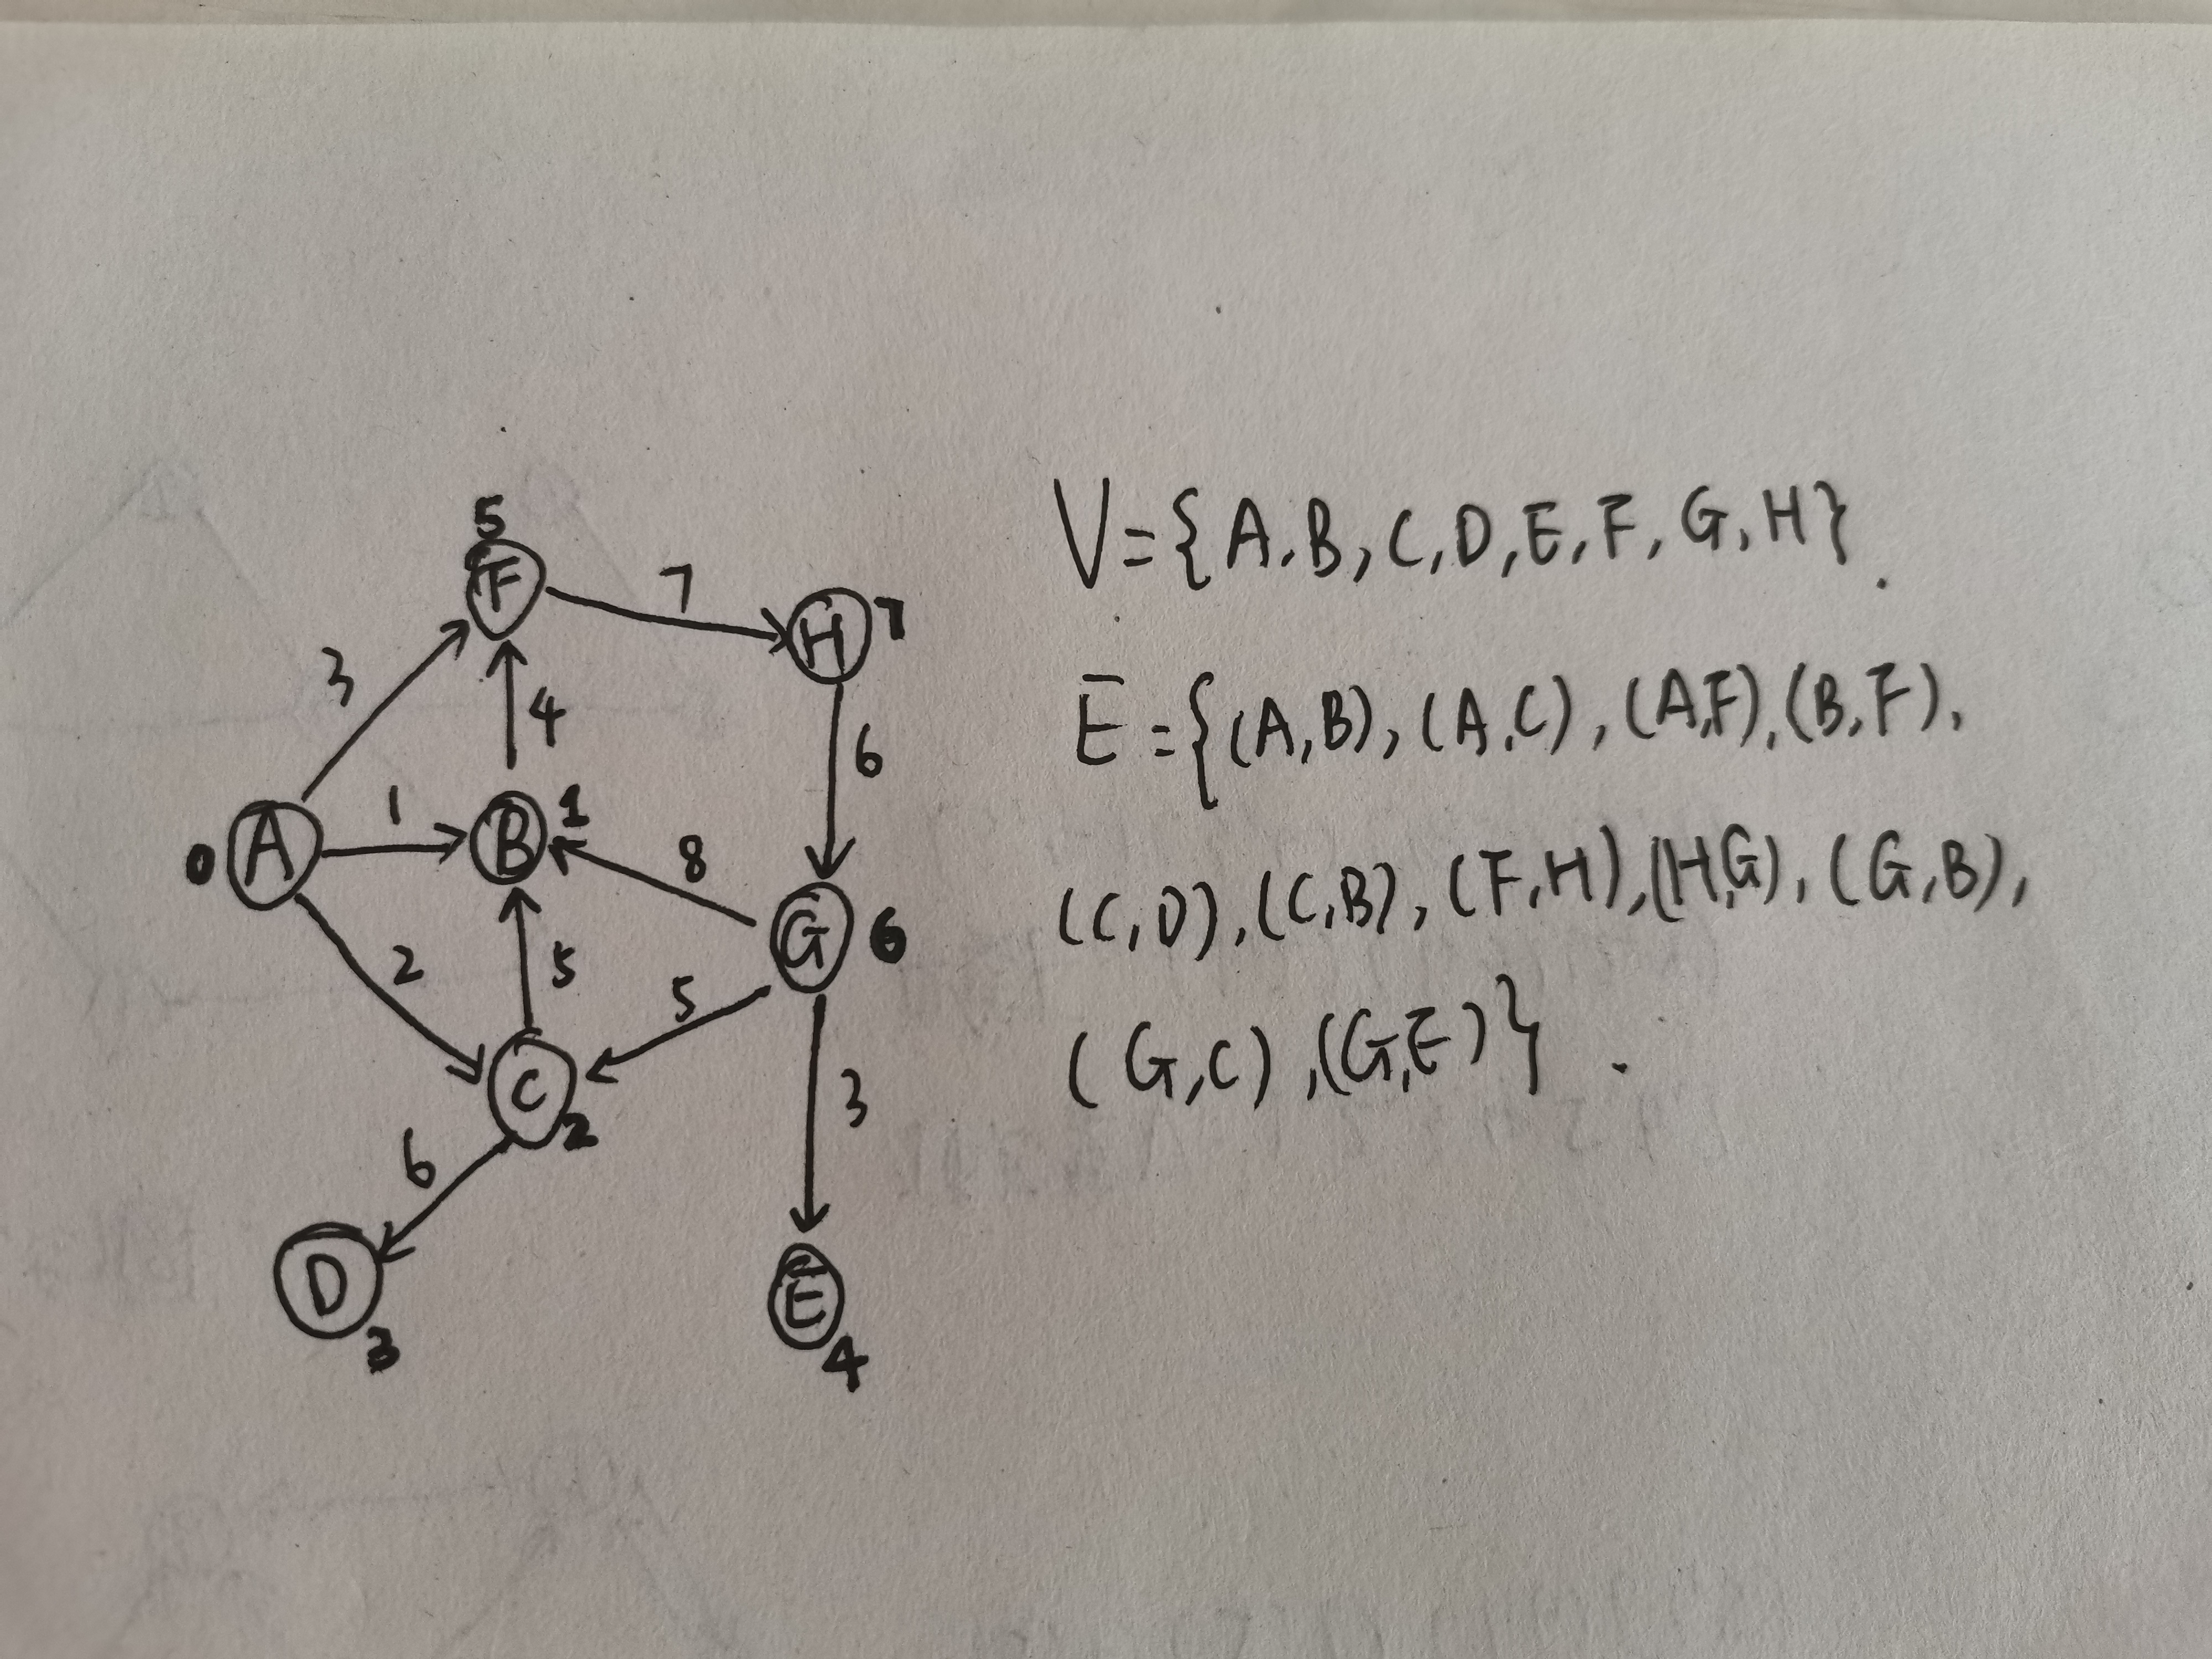 5
F
7
H 7
3
4
6
0 A 1 B 1
8
G 6
2
5
5
C 2
3
6
D 3
E 4
V={A,B,C,D,E,F,G,H}.
E={(A,B),(A,C),(A,F),(B,F),
(C,D),(C,B),(F,H),(H,G),(G,B),
(G,C),(G,E)}.